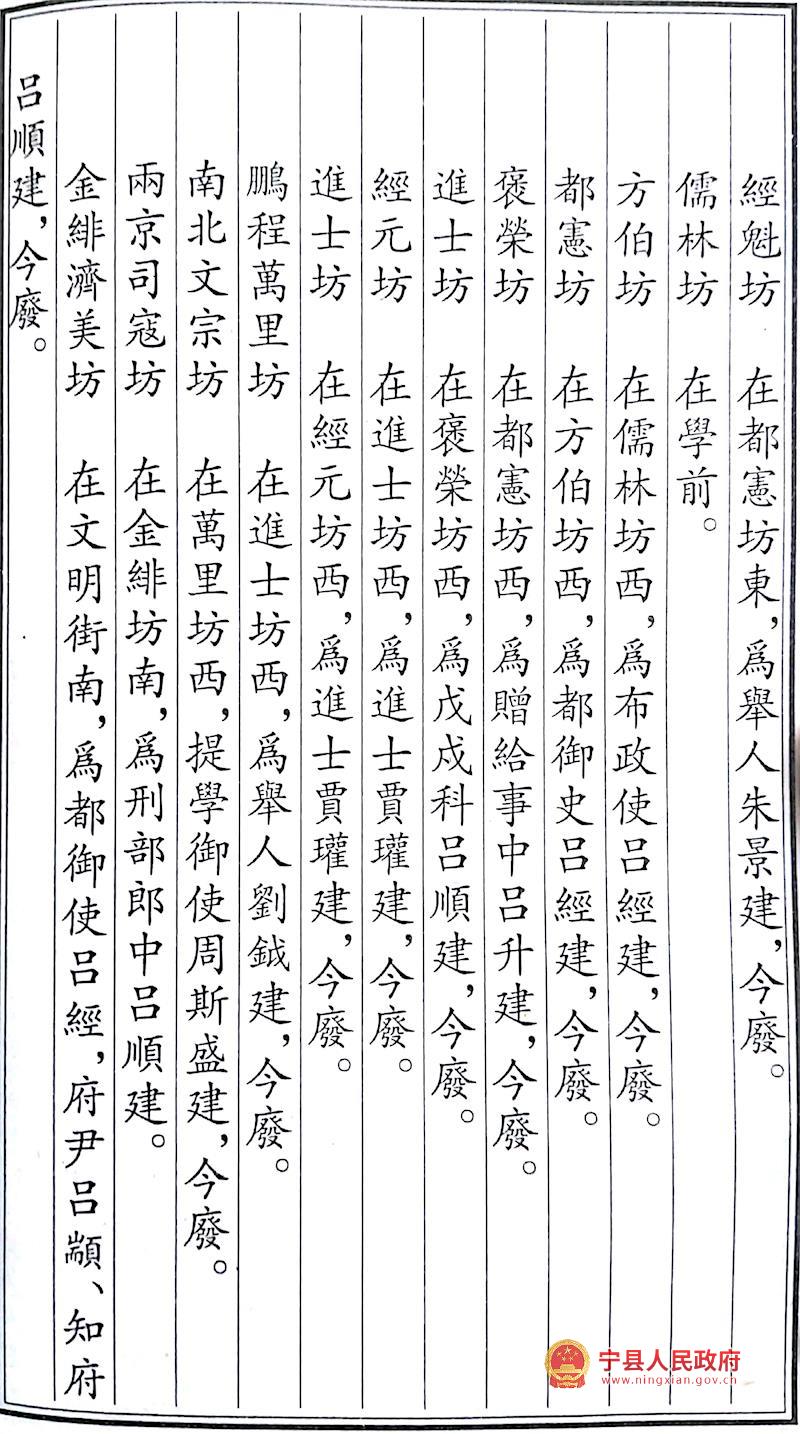 經魁坊　在都憲坊東，爲舉人朱景建，今廢。
儒林坊　在學前。
方伯坊　在儒林坊西，爲布政使呂經建，今廢。
都憲坊　在方伯坊西，爲都御史呂經建，今廢。
褒榮坊　在都憲坊西，爲贈給事中呂升建，今廢。
進士坊　在褒榮坊西，爲戊戍科呂順建，今廢。
經元坊　在進士坊西，爲進士賈瓘建，今廢。
進士坊　在經元坊西，爲進士賈瓘建，今廢。
鵬程萬里坊　在進士坊西，爲舉人劉鉞建，今廢。
南北文宗坊　在萬里坊西，提學御使周斯盛建，今廢。
兩京司寇坊　在金緋坊南，爲刑部郎中呂順建。
金緋濟美坊　在文明街南，爲都御使呂經，府尹呂顓、知府
呂順建，今廢。
宁县人民政府
www.ningxian.gov.cn